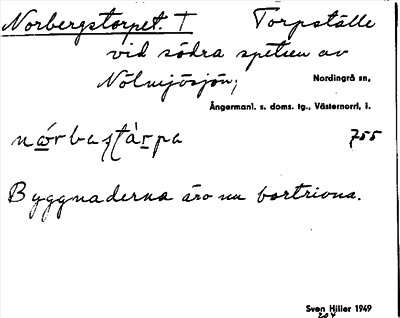 Norbergstorpet. T Torpställe
vid södra spetsen av
Nölmjösjön;
Nordingrå sn,
Ångermanl. s. doms. tg., Västernorrl. l.
755
Byggnaderna äro nu bortrivna.
Sven Hiller 1949